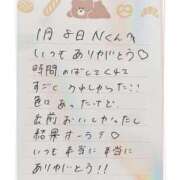 1月8日Nくんへ
いつもありがとう♡
時間のばしてくれて
すごくうれしかった!!
色々あったけど、
名前おいしかったし
結果オーライ♡
いつも本当に本当に
ありがとう!!